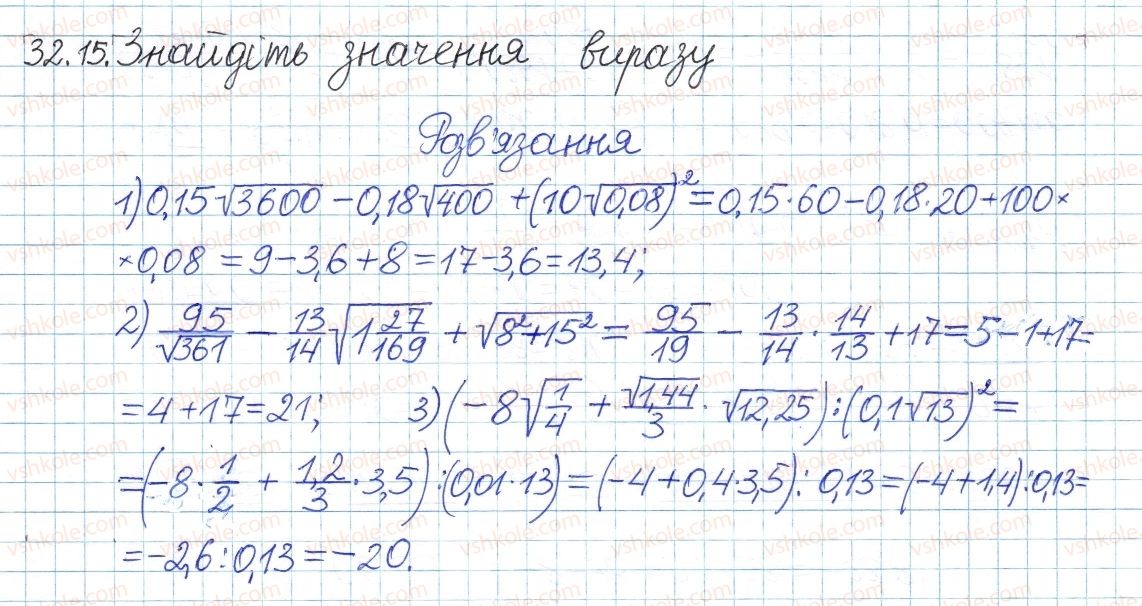 32.15. Знайдіть значення виразу
Розв'язання
1) 0,15√3600 − 0,18√400 + (10√0,08)² = 0,15·60 − 0,18·20 + 100×
×0,08 = 9 − 3,6 + 8 = 17 − 3,6 = 13,4;
2) 95/√361 − 13/14 √(1 27/169) + √(8²+15²) = 95/19 − 13/14 · 14/13 + 17 = 5 − 1 + 17 =
= 4 + 17 = 21; 3) (−8√(1/4) + √1,44/3 · √12,25) : (0,1√13)² =
= (−8 · 1/2 + 1,2/3 · 3,5) : (0,01·13) = (−4 + 0,4·3,5) : 0,13 = (−4 + 1,4) : 0,13 =
= −2,6 : 0,13 = −20.